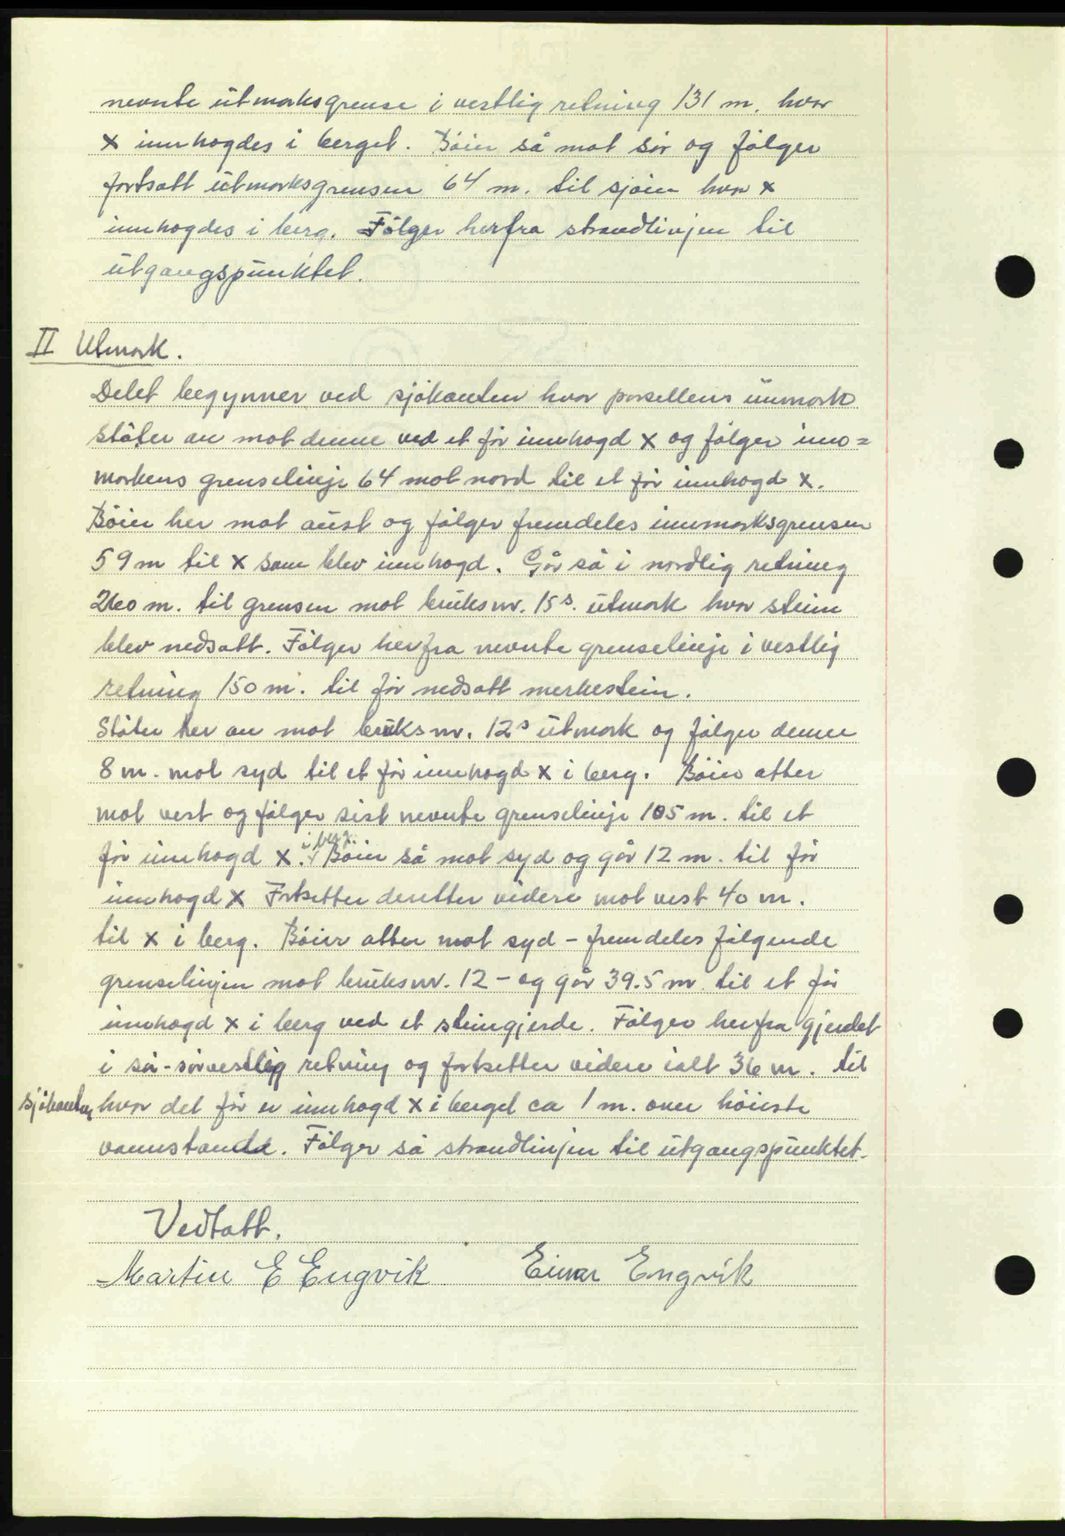 nevnte utmarksgrense i vestlig retning 131 m. hvor
x innhogdes i berget. Böier så mot sör og fölger
fortsatt utmarksgrensen 64 m. til sjöen hvor x
innhogdes i berg. Fölger herfra strandlinjen til
utgangspunktet.
II Utmark.
Delet begynner ved sjökanten hvor parsellens innmark
stöter an mot denne ved et för innhogd x og fölger inn=
markens grenselinje 64 mot nord til et för innhogd x.
Böier her mot aust og fölger fremdeles innmarksgrensen
59 m til x som blev innhogd. Går så i nordlig retning
260 m. til grensen mot bruksnr. 15s. utmark hvor stein
blev nedsatt. Fölger herfra nevnte grenselinje i vestlig
retning 150 m. til för nedsatt merkestein.
Stöter her an mot bruksnr. 12s utmark og fölger denne
8 m. mot syd til et för innhogd x i berg. Böier atter
mot vest og fölger sist nevnte grenselinje 105 m. til et
för innhogd x i berg. Böier så mot syd og går 12 m. til för
innhogd x Fortsetter deretter videre mot vest 40 m.
til x i berg. Böier atter mot syd - fremdeles fölgende
grenselinjen mot bruksnr. 12 - og går 39.5 m til et för
innhogd x i berg ved et steingjerde. Fölger herfra gjerdet
i sör-sörvestlig retning og fortsetter videre ialt 36 m. til
sjökanten hvor det för er innhogd x i berget ca 1 m. over höieste
vannstand. Fölger så strandlinjen til utgangspunktet.
Vedtatt.
Martin E Engvik Einar Engvik